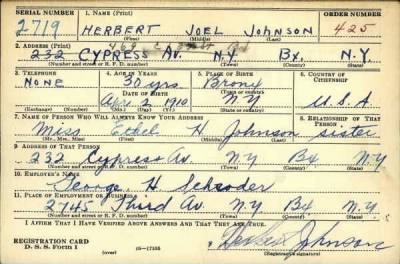 SERIAL NUMBER 1. NAME (Print) ORDER NUMBER
2719 HERBERT JOEL JOHNSON 425
(First) (Middle) (Last)
2. ADDRESS (Print)
232 CYPRESS Av. N.Y. Bx. N.Y.
(Number and street or R. F. D. number) (Town) (County) (State)
3. TELEPHONE 4. AGE IN YEARS 5. PLACE OF BIRTH 6. COUNTRY OF CITIZENSHIP
None 30 yrs. Bronx
DATE OF BIRTH (Town or county)
Apr 2 1910 N Y U.S.A.
(Exchange) (Number) (Mo.) (Day) (Yr.) (State or country)
7. NAME OF PERSON WHO WILL ALWAYS KNOW YOUR ADDRESS 8. RELATIONSHIP OF THAT PERSON
Miss Ethel H Johnson sister
(Mr., Mrs., Miss) (First) (Middle) (Last)
9. ADDRESS OF THAT PERSON
232 Cypress Av. N.Y Bx N.Y
(Number and street or R. F. D. number) (Town) (County) (State)
10. EMPLOYER'S NAME
George H Schroder
11. PLACE OF EMPLOYMENT OR BUSINESS
2745 Third Av. N.Y Bx N.Y
(Number and street or R. F. D. number) (Town) (County) (State)
I AFFIRM THAT I HAVE VERIFIED ABOVE ANSWERS AND THAT THEY ARE TRUE.
REGISTRATION CARD
D. S. S. Form 1 (over) 16—17105 Herbert Johnson
(Registrant's signature)